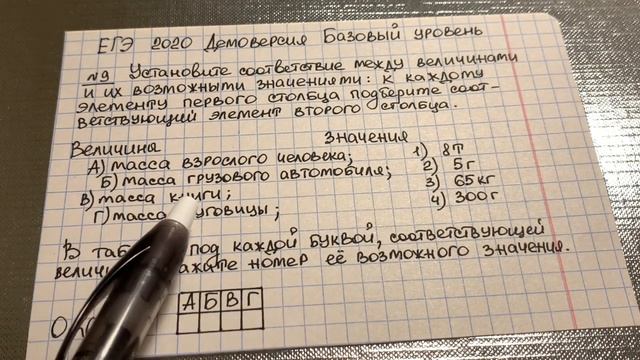 ЕГЭ 2020 Демоверсия Базовый уровень
№9 Установите соответствие между величинами
и их возможными значениями: к каждому
элементу первого столбца подберите соот-
ветствующий элемент второго столбца.
Величина Значения
А) масса взрослого человека; 1) 8т
Б) масса грузового автомобиля; 2) 5г
В) масса книги; 3) 65 кг
Г) масса 4) 300г
В под каждой буквой, соответствующей
номер её возможного значения.
А Б В Г